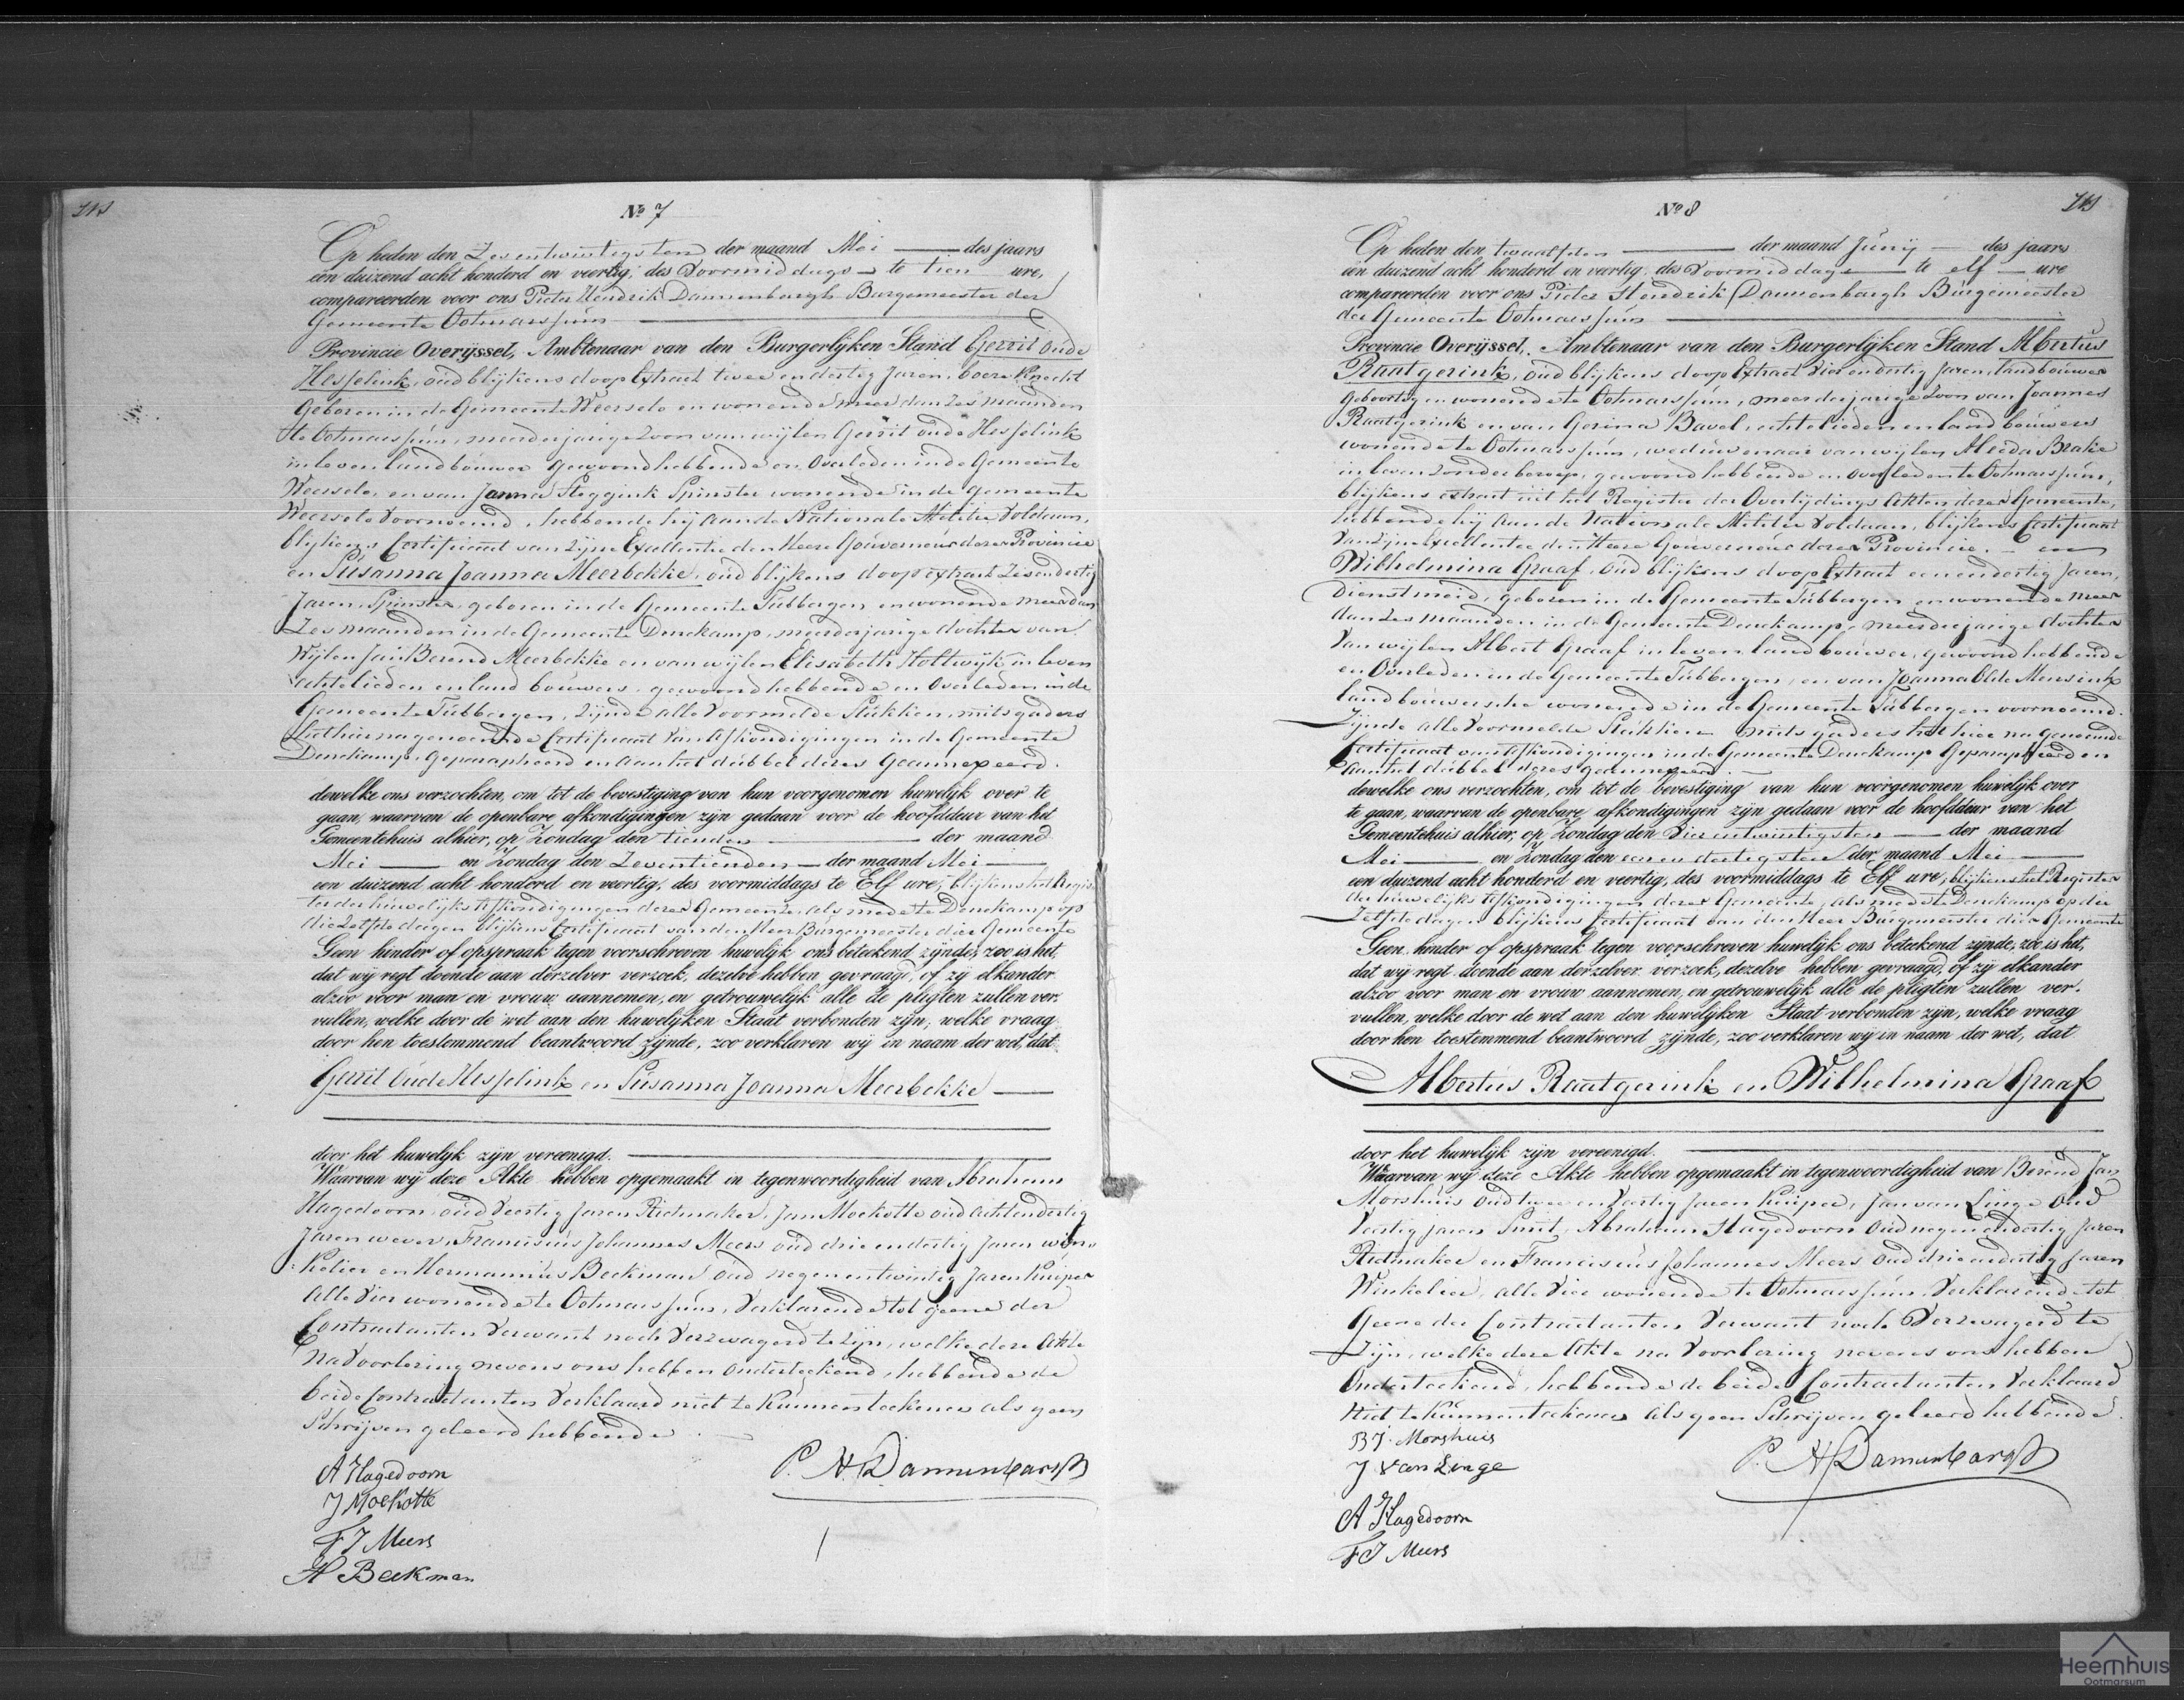 No 7
Op heden den Zesentwintigsten der maand Mei des jaars
een duizend acht honderd en veertig, des Voormiddags te tien ure,
compareerden voor ons Pieter Hendrik Dannenbargh Burgemeester der
Gemeente Ootmarssum
Provincie Overijssel, Ambtenaar van den Burgerlijken Stand Gerrit Oude
Hesselink, oud blijkens doop Extract twee endertig Jaren, boere Knecht
Geboren in de Gemeente Weerselo en wonende meer dan Zes maanden
te Ootmarssum, meerderjarige Zoon van wijlen Gerrit oude Hesselink
in leven landbouwer gewoond hebbende en Overleden in de Gemeente
Weerselo, en van Janna Steggink Spinster wonende in de gemeente
Weerselo Voornoemd, hebbende hij aan de Nationale Militie Voldaan,
blijkens Certificaat van Zijne Excellentie den Heere Gouverneur dezer Provincie
en Susanna Joanna Meerbekke, oud blijkens doop extract Zesendertig
Jaren, Spinster, geboren in de Gemeente Tubbergen en wonende meer dan
Zes maanden in de Gemeente Denekamp, meerderjarige dochter van
Wijlen Jan Berend Meerbekke en van wijlen Elisabeth Holtwijk in leven
echtelieden en land bouwers, gewoond hebbende en Overleden in de
Gemeente Tubbergen, Zijnde alle Voormelde Stukken, mitsgaders
het hierna genoemde Certificaat van Afkondigingen in de Gemeente
Denekamp, Geparapheerd en aan het dubbel dezes Geannexeerd.
dewelke ons verzochten, om tot de bevestiging van hun voorgenomen huwelijk over te
gaan, waarvan de openbare afkondigingen zijn gedaan voor de hoofddeur van het
Gemeentehuis alhier, op Zondag den tienden der maand
Mei en Zondag den Zeventienden der maand Mei
een duizend acht honderd en veertig, des voormiddags te Elf ure, blijkens het Regis
ter der huwelijks Afkondigingen dezer Gemeente, als mede te Denekamp op
die Zelfde dagen blijkens Certificaat van den Heer Burgemeester dier Gemeente
Geen hinder of opspraak tegen voorschreven huwelijk ons beteekend zijnde, zoo is het,
dat wij regt doende aan derzelver verzoek, dezelve hebben gevraagd, of zij elkander
alzoo voor man en vrouw aannemen, en getrouwelijk alle de pligten zullen ver-
vullen, welke door de wet aan den huwelijken Staat verbonden zijn, welke vraag
door hen toestemmend beantwoord zijnde, zoo verklaren wij in naam der wet, dat
Gerrit Oude Hesselink en Susanna Joanna Meerbekke
door het huwelijk zijn vereenigd.
Waarvan wij deze Akte hebben opgemaakt in tegenwoordigheid van Abraham
Hagedoorn oud Veertig Jaren Rietmaker, Jan Moekotte oud achtendertig
Jaren wever, Franciscus Johannes Meers oud drie endertig Jaren win-
kelier en Hermannus Beekman oud negen entwintig Jaren Kuiper
Alle Vier wonende te Ootmarssum, Verklarende tot geene der
Contractanten Verwant noch Verzwagerd te zijn, welke deze Akte
Na Voorlezing nevens ons hebben Onderteekend, hebbende de
beide Contractanten Verklaard niet te Kunnen teekenen als geen
Schrijven geleerd hebbende.
A Hagedoorn
P. H. Dannenbargh
J Moekotte
F J Meers
H Beekman
No 8
Op heden den twaalfden der maand Junij des jaars
een duizend acht honderd en veertig, des Voormiddags te elf ure
compareerden voor ons Pieter Hendrik Dannenbargh Burgemeester
der Gemeente Ootmarssum
Provincie Overijssel, Ambtenaar van den Burgerlijken Stand Albertus
Raatgerink, oud blijkens doop Extract Vier endertig Jaren, landbouwer
geboortig en wonende te Ootmarssum, meerderjarige Zoon van Joannes
Raatgerink en van Gesina Bavel, echtelieden en land bouwers
wonende te Ootmarssum, weduwenaar van wijlen Aleida Brake
in leven zonder beroep, gewoond hebbende en overleden te Ootmarssum,
blijkens extract uit het Register der Overlijdings Akten dezer Gemeente,
hebbende hij aan de Nationale Militie Voldaan, blijkens Certificaat
Van Zijne Excellentie den Heere Gouverneur dezer Provincie. en
Wilhelmina Graaf, Oud blijkens doop Extract eenendertig Jaren,
Dienstmeid, geboren in de Gemeente Tubbergen en wonende meer
dan Zes maanden in de Gemeente Denekamp, meerderjarige dochter
Van wijlen Albert Graaf in leven landbouwer, gewoond hebbende
en Overleden in de Gemeente Tubbergen, en van Joanna Olde Mensink
landbouwersche wonende in de Gemeente Tubbergen voornoemd.
Zijnde alle Voormelde Stukken mitsgaders het hier na Genoemde
Certificaat van Afkondigingen in de Gemeente Denekamp Geparapheerd en
aan het dubbel dezes geannexeerd.
dewelke ons verzochten, om tot de bevestiging van hun voorgenomen huwelijk over
te gaan, waarvan de openbare afkondigingen zijn gedaan voor de hoofddeur van het
Gemeentehuis alhier, op Zondag den Vier entwintigsten der maand
Mei en Zondag den een en dertigsten der maand Mei
een duizend acht honderd en veertig, des voormiddags te Elf ure, blijkens het Register
der huwelijks Afkondigingen dezer Gemeente, als mede te Denekamp op die
Zelfde dagen blijkens Certificaat van den Heer Burgemeester dier Gemeente
Geen hinder of opspraak tegen voorschreven huwelijk ons beteekend zijnde, zoo is het,
dat wij regt doende aan derzelver verzoek, dezelve hebben gevraagd, of zij elkander
alzoo voor man en vrouw aannemen, en getrouwelijk alle de pligten zullen ver-
vullen, welke door de wet aan den huwelijken Staat verbonden zijn, welke vraag
door hen toestemmend beantwoord zijnde, zoo verklaren wij in naam der wet, dat
Albertus Raatgerink en Wilhelmina Graaf
door het huwelijk zijn vereenigd.
Waarvan wij deze Akte hebben opgemaakt in tegenwoordigheid van Berend Jan
Morshuis oud twee en Veertig Jaren Kuiper, Jan van Linge Oud
Veertig jaren Smit, Abraham Hagedoorn Oud negenendertig Jaren
Rietmaker en Franciscus Johannes Meers oud drie endertig Jaren
Winkelier, alle Vier wonende te Ootmarssum, Verklarende tot
Geene der Contractanten Verwant noch Verzwagerd te
Zijn, welke deze Akte na Voorlezing nevens ons hebben
Onderteekend, hebbende de beide Contractanten Verklaard
Niet te Kunnen teekenen als geen Schrijven geleerd hebbende.
B J. Morshuis
P. H. Dannenbargh
J van Linge
A Hagedoorn
F J Meers
Heemhuis
Ootmarsum